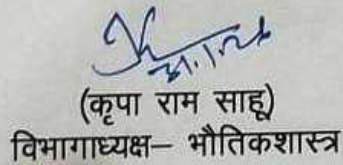 (कृपा राम साहू)
विभागाध्यक्ष– भौतिकशास्त्र